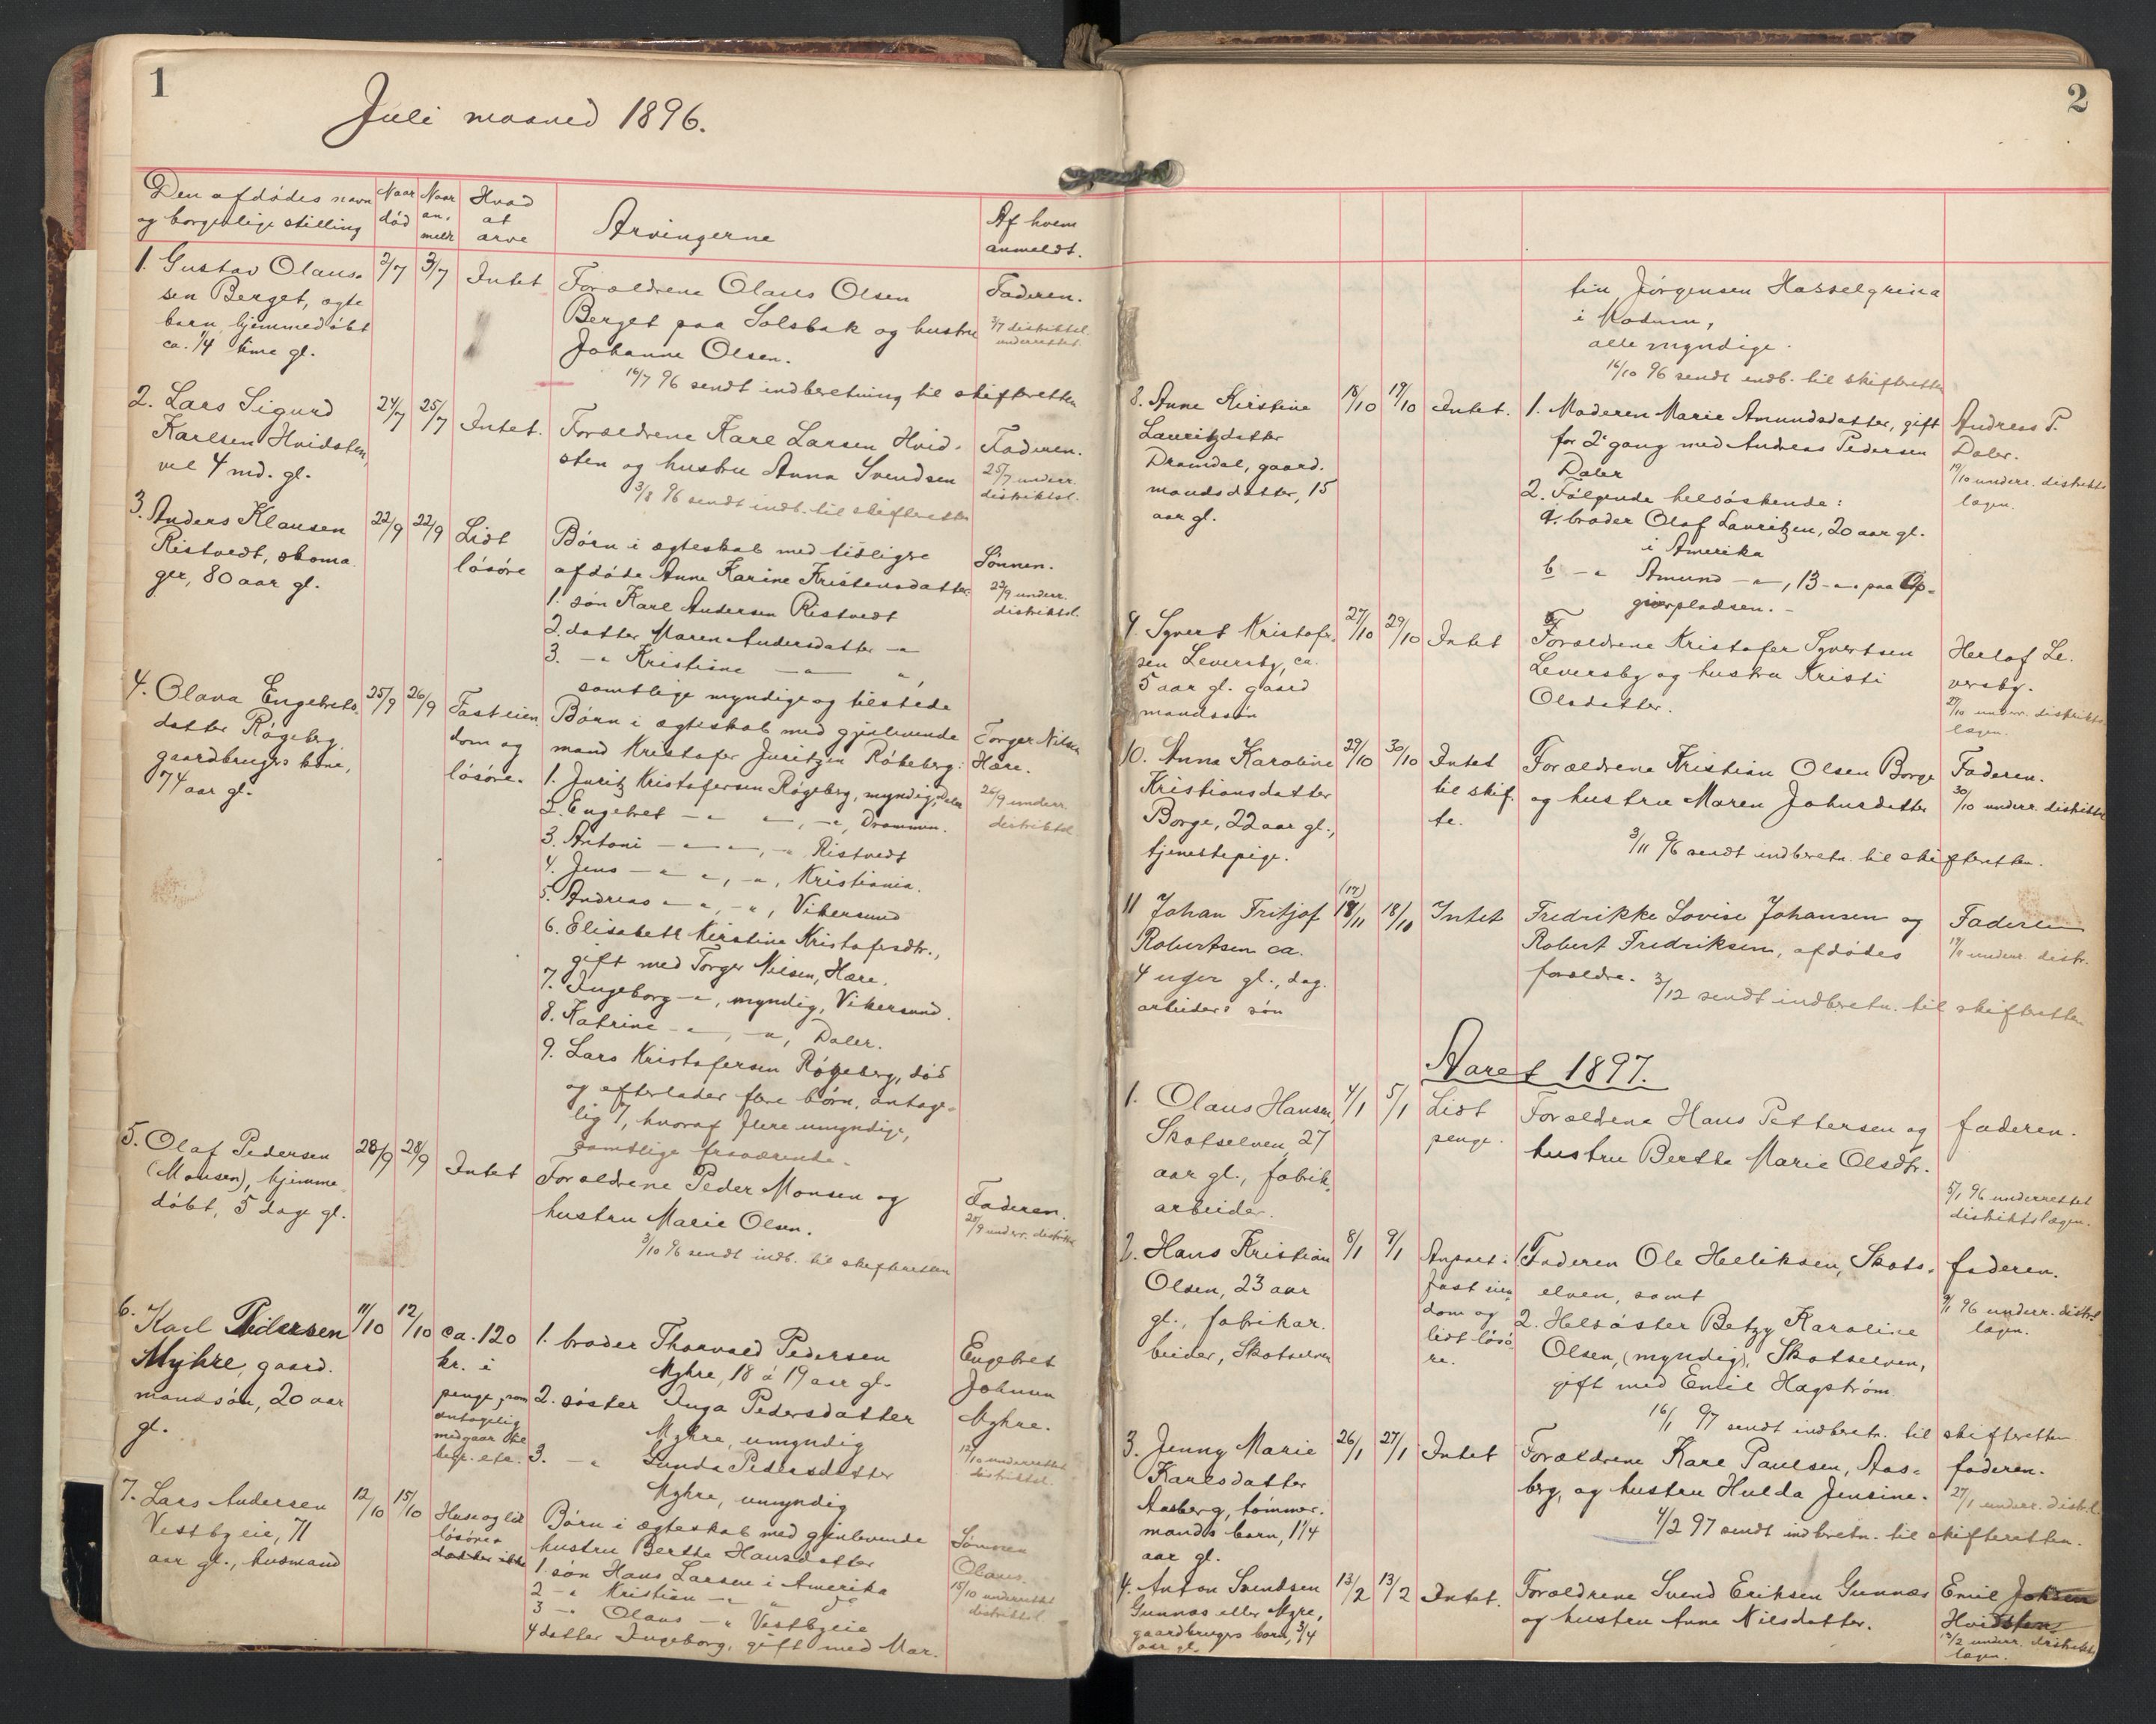 1
Juli maaned 1896.
Den afdødes navn og borgerlige stilling
Naar død
Naar anmeldt
Hvad at arve
Arvingerne
Af hvem anmeldt.
1. Gustav Olaus-
sen Berget, ægte
barn, hjemmedøbt
ca. 1/4 time gl.
2/7
3/7
Intet
Forældrene Olaus Olsen
Berget paa Solsbak og hustru
Johanne Olsen.
16/7 96 sendt indberetning til skifteretten
Faderen.
3/7 distriktsl.
underrettet.
2. Lars Sigurd
Karlsen Hvidsten,
vel 4 md. gl.
24/7
25/7
Intet.
Forældrene Karl Larsen Hvid-
sten og hustru Anna Svendsen
3/8 96 sendt indb. til skifteretten
Faderen.
25/7 underr.
distriktsl.
3. Anders Klausen
Ristvedt, skoma
ger, 80 aar gl.
22/9
22/9
Lidt
løsøre
Børn i ægteskab med tidligere
afdøde Anne Karine Kristensdatter
1. søn Karl Andersen Ristvedt
2. datter Maren Andersdatter -"-
3. -"- Kristine -"- ",
samtlige myndige og tilstede
Sønnen.
22/9 underr.
distriktsl.
4. Olava Engebrets-
datter Røgeberg,
gaardbrugers kone,
74 aar gl.
25/9
26/9
Fast eien
dom og
løsøre.
Børn i ægteskab med gjenlevende
mand Kristofer Juritzen Røkeberg:
1. Juritz Kristofersen Røgeberg, myndig, Daler
2. Engebret -"- -"-, -"-, Drammen.
3. Antoni -"- -"-, -"- Ristvedt
4. Jens -"- ", -"-, Kristiania.
5. Andreas -"- ", -"-, Vikersund
6. Elisabeth Kirstine Kristofersdtr.,
gift med Torger Nilsen, Hære.
7. Ingeborg -"-, myndig, Vikersund.
8. Katrine -"-, -"-, Daler.
9. Lars Kristofersen Røgeberg, død
og efterlader flere børn, antage-
lig 7, hvoraf flere umyndige,
samtlige fraværende.
Torger Nilsen
Hære.
26/9 underr.
distriktsl.
5. Olaf Pedersen
(Monsen), hjemme
døbt, 5 dage gl.
28/9
28/9
Intet
Forældrene Peder Monsen og
hustru Marie Olsen.
3/10 96 sendt indb. til skifteretten
Faderen.
28/9 underr. distrikts
6. Karl Pedersen
Myhre, gaard.
mandsøn, 20 aar
gl.
11/10
12/10
ca. 120
kr. i
penge, som
antagelig
medgaar til
begr. etc.
1. broder Thorvald Pedersen
Myhre, 18 á 19 aar gl.
2. søster Inga Pedersdatter
Myhre, umyndig
3. -"- Gunda Pedersdatter
Myhre, umyndig
Engebret
Johnsen
Myhre.
12/10 underrettet
distriktsl.
7. Lars Andersen
Vestbyeie, 71
aar gl., husmand
12/10
15/10
Huse og lidt
løsøre
Børn i ægteskab med gjenlevende
hustru Berthe Hansdatter
1. søn Hans Larsen i Amerika
2 -"- Kristian -"- " do
3 -"- Olaus -"- Vestbyeie
4 datter Ingeborg, gift med Mar.
Sønnen
Olaus.
15/10 underrettet
distriktsl.
2
tin Jørgensen Hasselgrina
i Modum,
alle myndige.
16/10 96 sendt indb. til skifteretten
8. Anne Kirstine
Lauritzdatter
Dramdal, gaard.
mandsdatter, 15
aar gl.
18/10
19/10
Intet.
1. Moderen Marie Amundsdatter, gift
for 2. gang med Andreas Pedersen
Daler
2. Følgende helsøskende:
a. broder Olaf Lauritzen, 20 aar gl.
i Amerika
b -"- Amund -"-, 13 -"- paa Op-
gierpladsen. -
Andreas P.
Daler.
19/10 underr. distrikts
lægen.
9. Syvert Kristofer-
sen Leversby, ca.
5 aar gl. gaard
mandssøn
27/10
29/10
Intet
Forældrene Kristofer Syvertsen
Leversby og hustru Kristi
Olsdatter.
Herlof Le-
versby.
29/10 underr. distrikts
lægen.
10. Anna Karoline
Kristiansdatter
Borge, 22 aar gl.,
tjenestepige.
29/10
30/10
Intet
til skif.
te.
Forældrene Kristian Olsen Borge
og hustru Maren Johnsdatter
3/11 96 sendt indberetn. til skifteretten.
Faderen.
30/10 underr. distriktsl
11 Johan Fritjof
Robertsen ca.
4 uger gl., dag.
arbeiders søn
(17)
18/11
18/10
Intet
Fredrikke Lovise Johansen og
Robert Fredriksen, afdødes
forældre.
3/12 sendt indberetn. til skifteretten
Faderen
underr. distr.
Aaret 1897.
1. Olaus Hansen
Skotselven, 27
aar gl., fabrik-
arbeider.
4/1
5/1
Lidt
penge.
Forældrene Hans Pettersen og
hustru Berthe Marie Olsdtr.
faderen.
5/1 96 underrettet
distriktslægen.
2. Hans Kristian
Olsen, 23 aar
gl., fabrikar.
beider, Skotselven
8/1
9/1
Anpart i
fast eien
dom og
lidt løsø
re.
1. Faderen Ole Helliksen, Skots-
elven, samt
2. Helsøster Betzy Karoline
Olsen, (myndig), Skotselven,
gift med Emil Hagstrøm.
16/1 97 sendt indberetn. til skifteretten
faderen.
9/1 96 underr. distr.
lægen.
3. Jenny Marie
Karlsdatter
Aasberg, tømmer.
mands barn, 1 1/4
aar gl.
26/1
27/1
Intet
Forældrene Karl Paulsen, Aas-
berg, og hustru Hulda Jensine.
4/2 97 sendt indberetn. til skifteretten.
faderen.
27/1 underr. distrl.
4. Anton Svendsen
Gunnæs eller Myre,
gaardbrugers barn, 3/4
aar gl.
13/2
13/2
Intet.
Forældrene Svend Eriksen Gunnæs
og hustru Anne Nilsdatter.
Emil Johsen
Hvidsten
13/2 underr. distrikts
lægen.